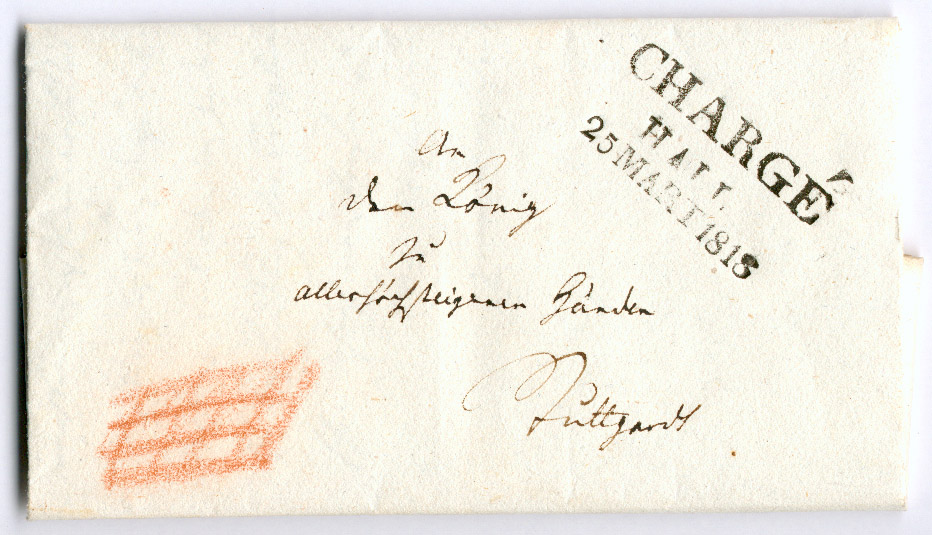 CHARGÉ
HALL
25 MART 1818
An
den König
zu
allerhöchsteigenen Händen
Stuttgardt